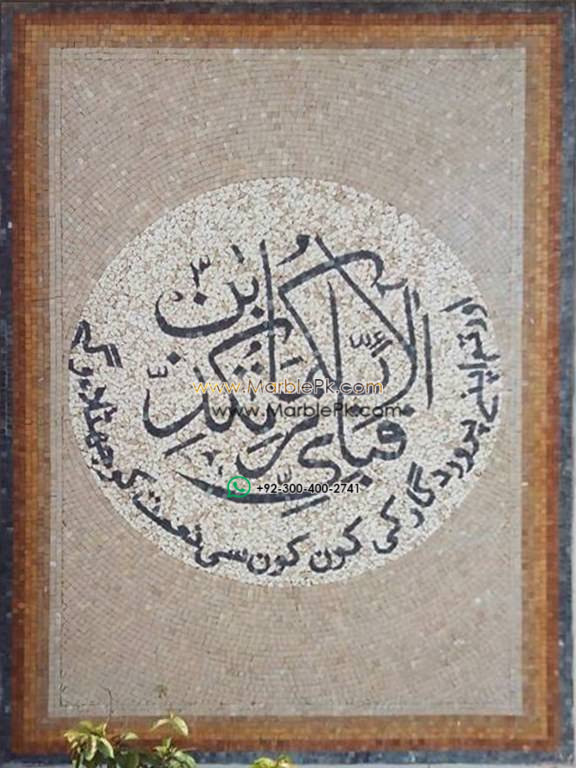 فبای آلاء ربکما تکذبٰن
اور تم اپنے پروردگار کی کون کون سی نعمت کو جھٹلاؤ گے
www.MarblePk.com
www.MarblePk.com
+92-300-400-2741